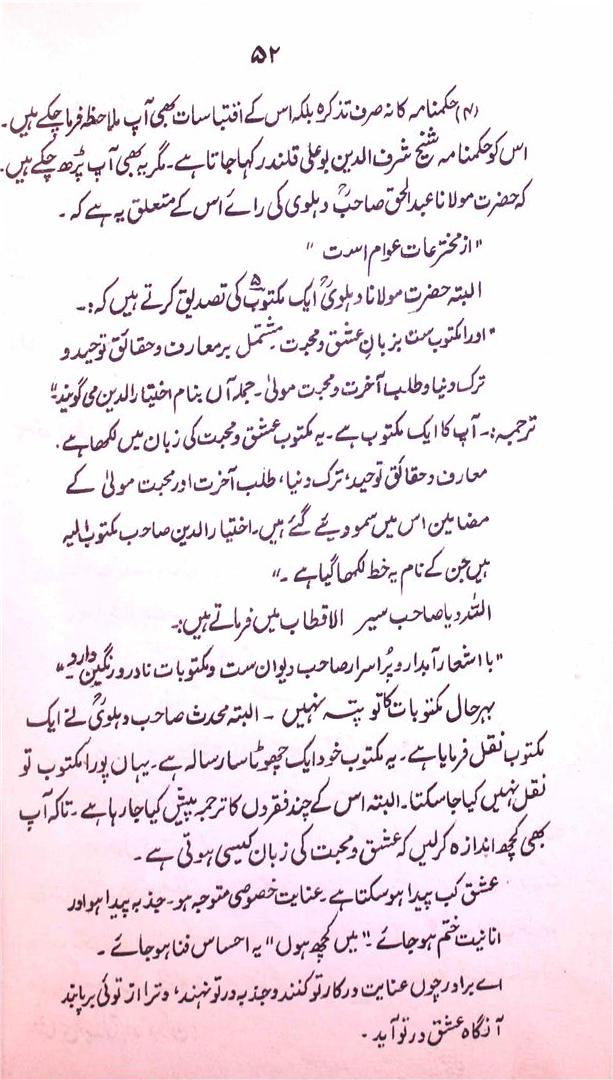 ۵۲
(۴) حکمنامہ کا نہ صرف تذکرہ بلکہ اس کے اقتباسات بھی آپ ملاحظہ فرما چکے ہیں۔
اس کو حکمنامہ شیخ شرف الدین بوعلی قلندر کہا جاتا ہے۔ مگر یہ بھی آپ پڑھ چکے ہیں۔
کہ حضرت مولانا عبدالحق صاحبؒ دہلوی کی رائے اس کے متعلق یہ ہے کہ۔
"از مخترعات عوام است"
البتہ حضرت مولانا دہلویؒ ایک مکتوب۵ کی تصدیق کرتے ہیں کہ:۔
"اورا مکتوب ست بزبانِ عشق و محبت مشتمل بر معارف و حقائق توحید و
ترک دنیا و طلب آخرت و محبت مولیٰ۔ جملہ آں بنام اختیار الدین می گویند"
ترجمہ:۔ آپ کا ایک مکتوب ہے۔ یہ مکتوب عشق و محبت کی زبان میں لکھا ہے۔
معارف و حقائق توحید، ترک دنیا، طلب آخرت اور محبت مولیٰ کے
مضامین اس میں سمو دیئے گئے ہیں۔ اختیار الدین صاحب مکتوب الیہ
ہیں جن کے نام یہ خط لکھا گیا ہے۔"
اللہ دیا صاحب سیر الاقطاب میں فرماتے ہیں:۔
"با اشعار آبدار و پُر اسرار صاحب دیوان ست و مکتوبات نادر و رنگین دارد۔"
بہرحال مکتوبات کا تو پتہ نہیں۔ البتہ محدث صاحب دہلویؒ نے ایک
مکتوب نقل فرمایا ہے۔ یہ مکتوب خود ایک چھوٹا سا رسالہ ہے۔ یہاں پورا مکتوب تو
نقل نہیں کیا جا سکتا۔ البتہ اس کے چند فقروں کا ترجمہ پیش کیا جا رہا ہے۔ تاکہ آپ
بھی کچھ اندازہ کر لیں کہ عشق و محبت کی زبان کیسی ہوتی ہے۔
عشق کب پیدا ہو سکتا ہے۔ عنایت خصوصی متوجہ ہو۔ جذبہ پیدا ہو اور
انانیت ختم ہو جائے۔ "میں کچھ ہوں" یہ احساس فنا ہو جائے۔
اے برادر چوں عنایت در کار تو کنند و جذبہ در تو نہند، و ترا از توئی بر یابند
آنگاہ عشق در تو آید۔